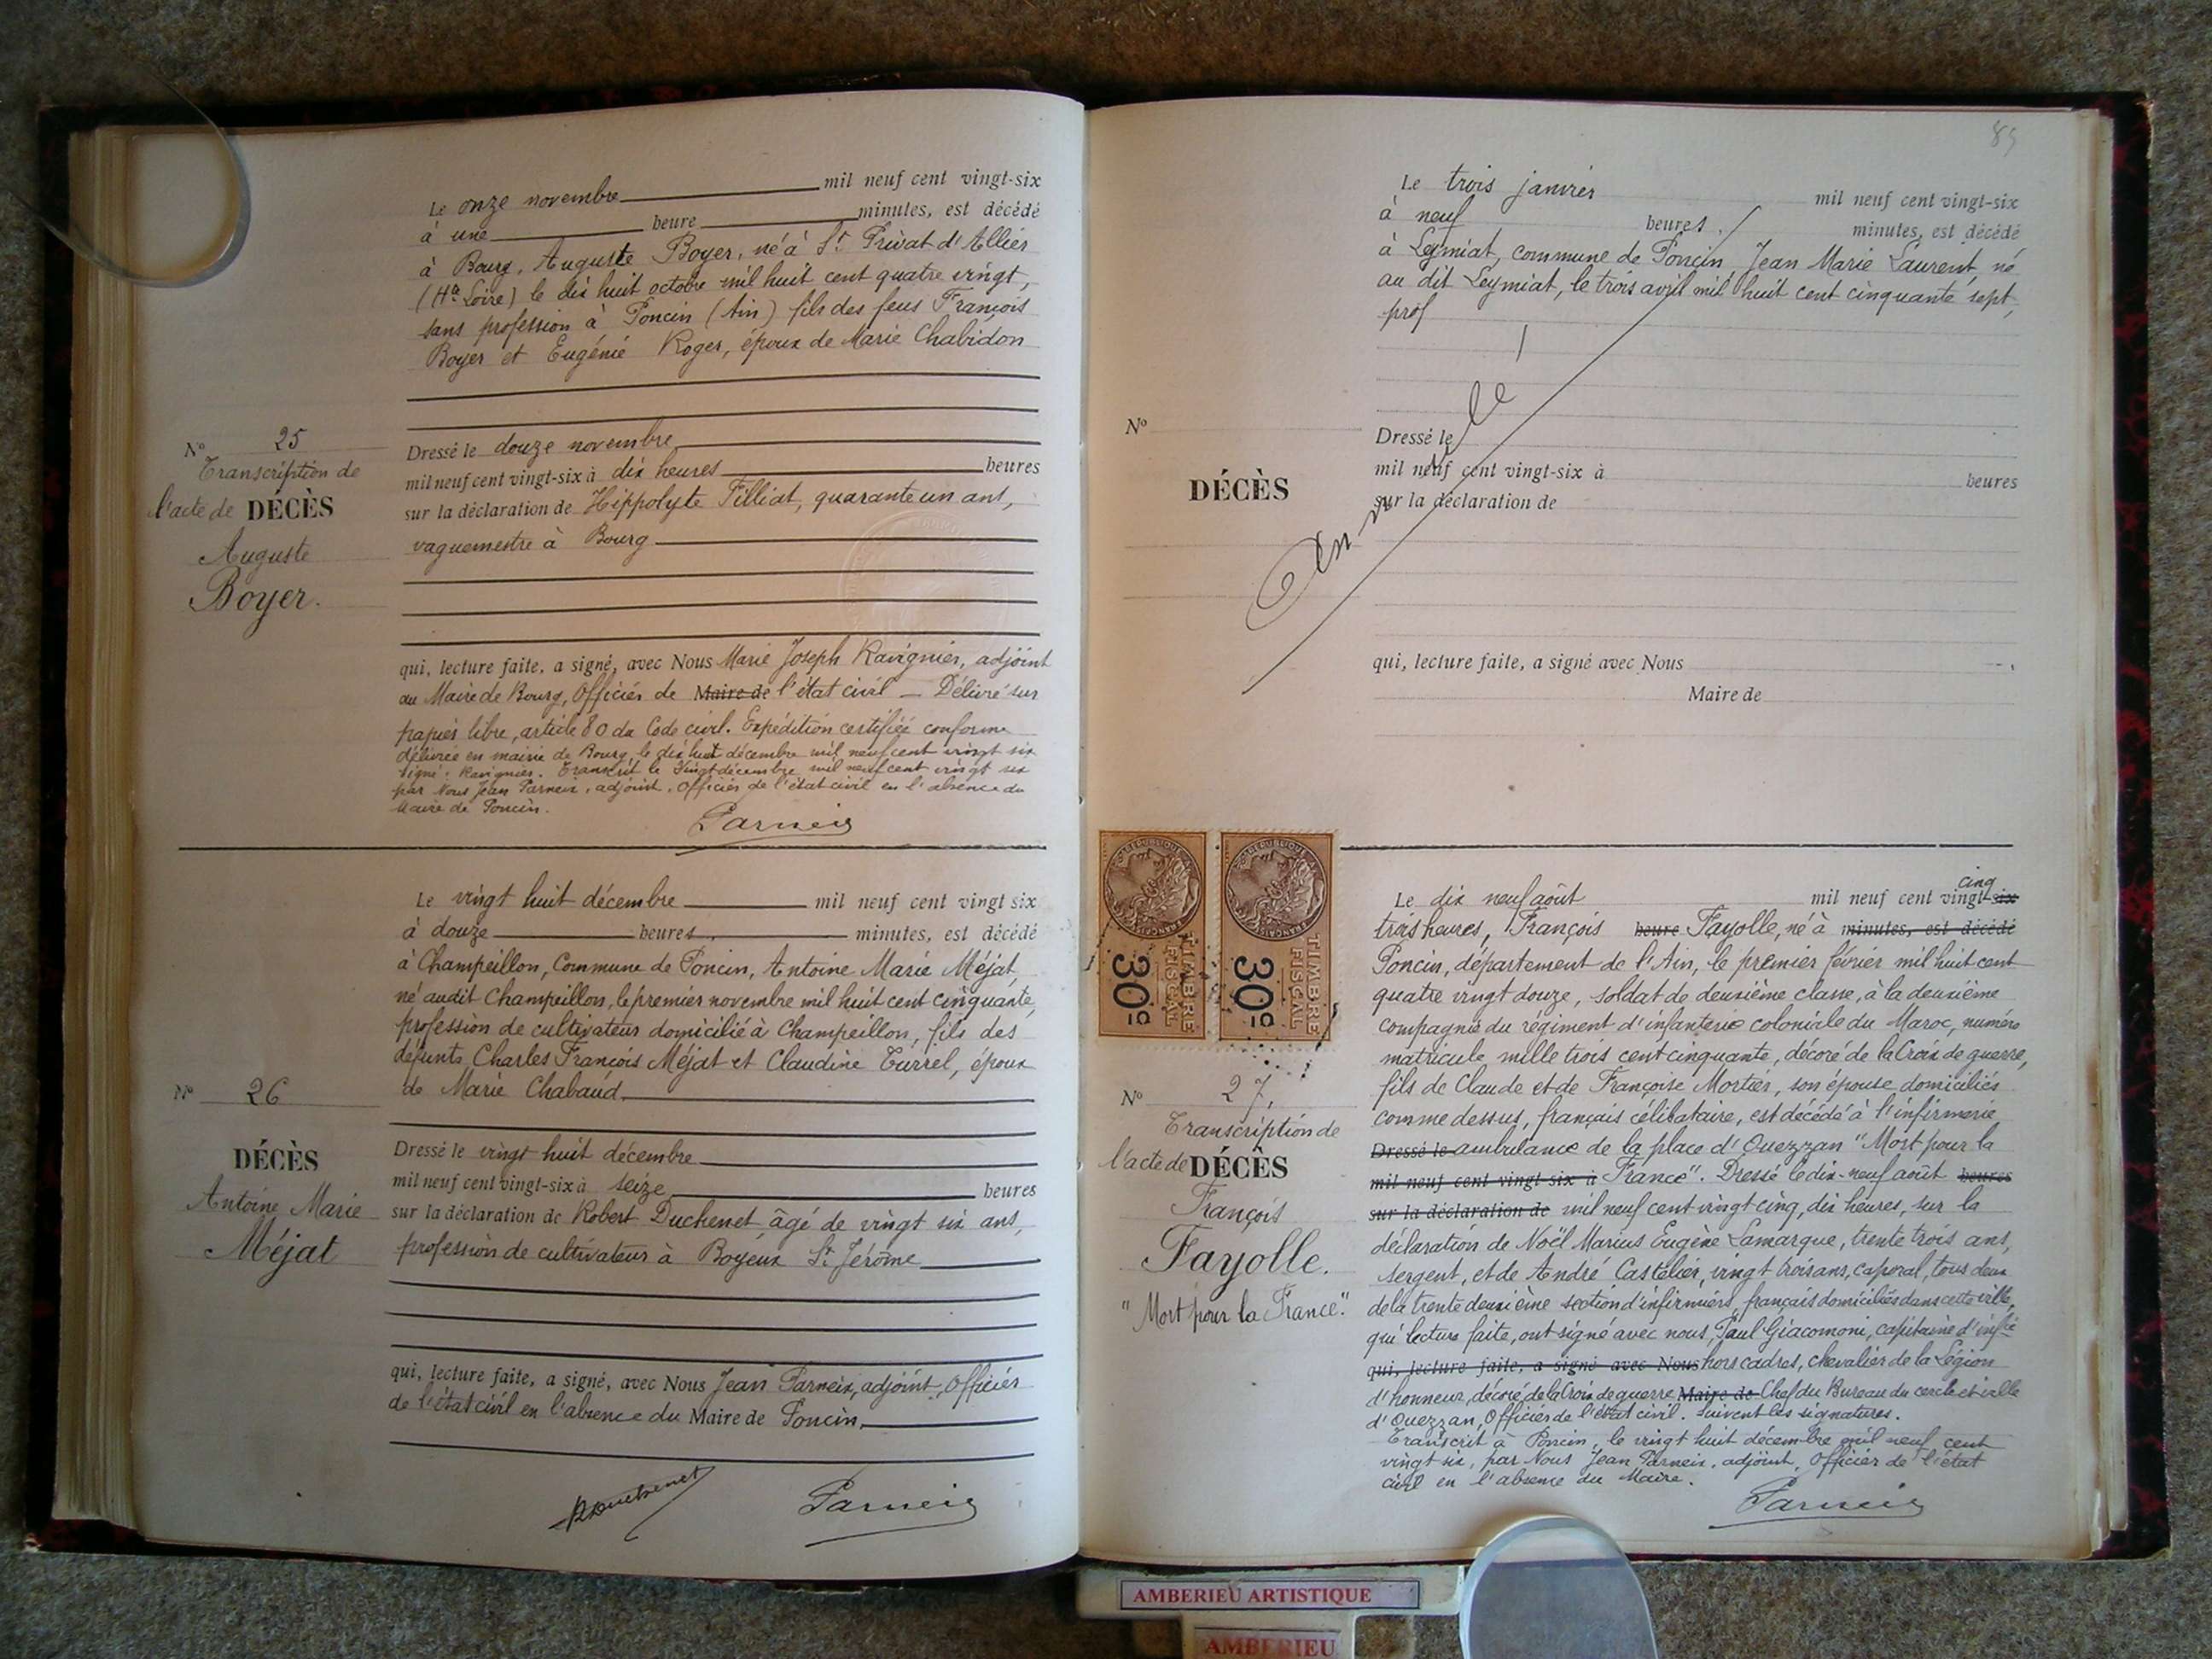 Le onze novembre mil neuf cent vingt-six
à une heure minutes, est décédé
à Bourg, Auguste Boyer, né à St Privat d'Allier
(Hte Loire) le dix huit octobre mil huit cent quatre vingt,
sans profession à Poncin (Ain) fils des feus François
Boyer et Eugénie Roger, époux de Marie Chabidon
No 25
Transcription de
l'acte de DÉCÈS
Auguste
Boyer.
Dressé le douze novembre
mil neuf cent vingt-six à dix heures heures
sur la déclaration de Hippolyte Filliat, quarante un ans,
vaguemestre à Bourg
qui, lecture faite, a signé, avec Nous Marie Joseph Ravignier, adjoint
au Maire de Bourg, Officier de Maire de l'état civil — Délivré sur
papier libre, article 80 du Code civil. Expédition certifiée conforme
délivrée en mairie de Bourg, le dix huit décembre mil neuf cent vingt six
Signé : Ravignier. Transcrit le Vingt décembre mil neuf cent vingt six
par Nous Jean Parneix, adjoint, Officier de l'état civil en l'absence du
Maire de Poncin.
Parneix
Le vingt huit décembre mil neuf cent vingt six
à douze heures, minutes, est décédé
à Champeillon, Commune de Poncin, Antoine Marie Méjat,
né audit Champeillon, le premier novembre mil huit cent cinquante,
profession de cultivateur domicilié à Champeillon, fils des
défunts Charles François Méjat et Claudine Turrel, époux
de Marie Chabaud.
No 26
DÉCÈS
Antoine Marie
Méjat
Dressé le vingt huit décembre
mil neuf cent vingt-six à seize heures
sur la déclaration de Robert Duchenet, âgé de vingt six ans,
profession de cultivateur à Boyeux St Jérôme
qui, lecture faite, a signé, avec Nous Jean Parneix, adjoint, Officier
de l'état civil en l'absence du Maire de Poncin,
RDuchenet
Parneix
89
Le trois janvier mil neuf cent vingt-six
à neuf heures. minutes, est décédé
à Leymiat, commune de Poncin Jean Marie Laurent, né
au dit Leymiat, le trois avril mil huit cent cinquante sept,
prof
No
DÉCÈS
Dressé le
mil neuf cent vingt-six à heures
sur la déclaration de
Annulé
qui, lecture faite, a signé avec Nous
Maire de
TIMBRE
FISCAL
30c
TIMBRE
FISCAL
30c
No 27.
Transcription de
l'acte de DÉCÈS
François
Fayolle.
"Mort pour la France".
Le dix neuf août mil neuf cent vingt-six cinq
trois heures, François heure Fayolle, né à minutes, est décédé
Poncin, département de l'Ain, le premier février mil huit cent
quatre vingt douze, soldat de deuxième classe, à la deuxième
compagnie du régiment d'infanterie coloniale du Maroc, numéro
matricule mille trois cent cinquante, décoré de la Croix de guerre,
fils de Claude et de Françoise Mortier, son épouse domiciliés
comme dessus, français célibataire, est décédé à l'infirmerie
Dressé le ambulance de la place d'Ouezzan "Mort pour la
mil neuf cent vingt-six à France". Dressé le dix-neuf août heures
sur la déclaration de mil neuf cent vingt cinq, dix heures, sur la
déclaration de Noël Marius Eugène Lamarque, trente trois ans,
sergent, et de André Castelier, vingt trois ans, caporal, tous deux
de la trente deuxième section d'infirmiers, français domiciliés dans cette ville,
qui lecture faite, ont signé avec nous, Paul Giacomoni, capitaine d'infie
qui, lecture faite, a signé avec Nous hors cadres, chevalier de la Légion
d'honneur, décoré de la Croix de guerre Maire de Chef du Bureau du cercle et ville
d'Ouezzan, Officier de l'état civil. Suivent les signatures.
Transcrit à Poncin, le vingt huit décembre mil neuf cent
vingt six, par Nous Jean Parneix, adjoint, Officier de l'état
civil en l'absence du Maire.
Parneix
AMBERIEU ARTISTIQUE
AMBERIEU